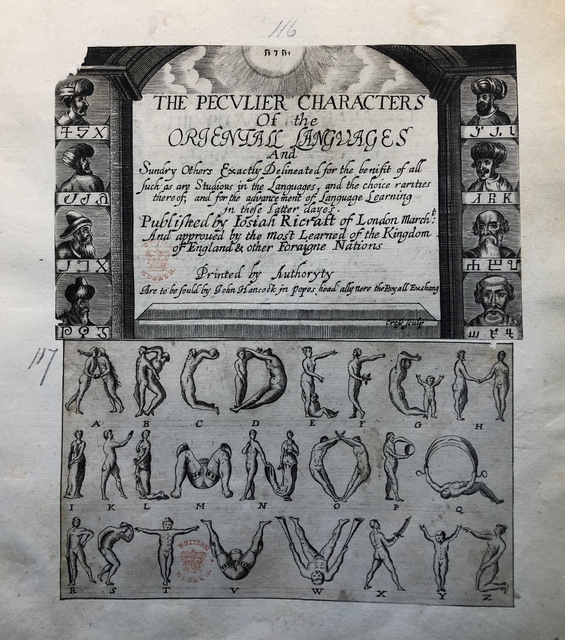 116
יהוה
THE PECVLIER CHARACTERS
Of the
ORIENTALL LANGVAGES
And
Sundry Others Exactly Delineated for the benifit of all
such as are Studious in the Languages, and the choice rarities
thereof, and for the advancement of Language Learning
in these latter dayes
Published by Iosiah Ricraft of London March:t
And approued by the most Learned of the Kingdom
of England & other Foraigne Nations
Printed by Authoryty
Are to be sould by John Hancock in popes head ally nere the Royall Exchang
Cross sculp
117
A B C D E F G H
I K L M N O P Q
R S T V W X Y Z
BRITISH
MUSEUM